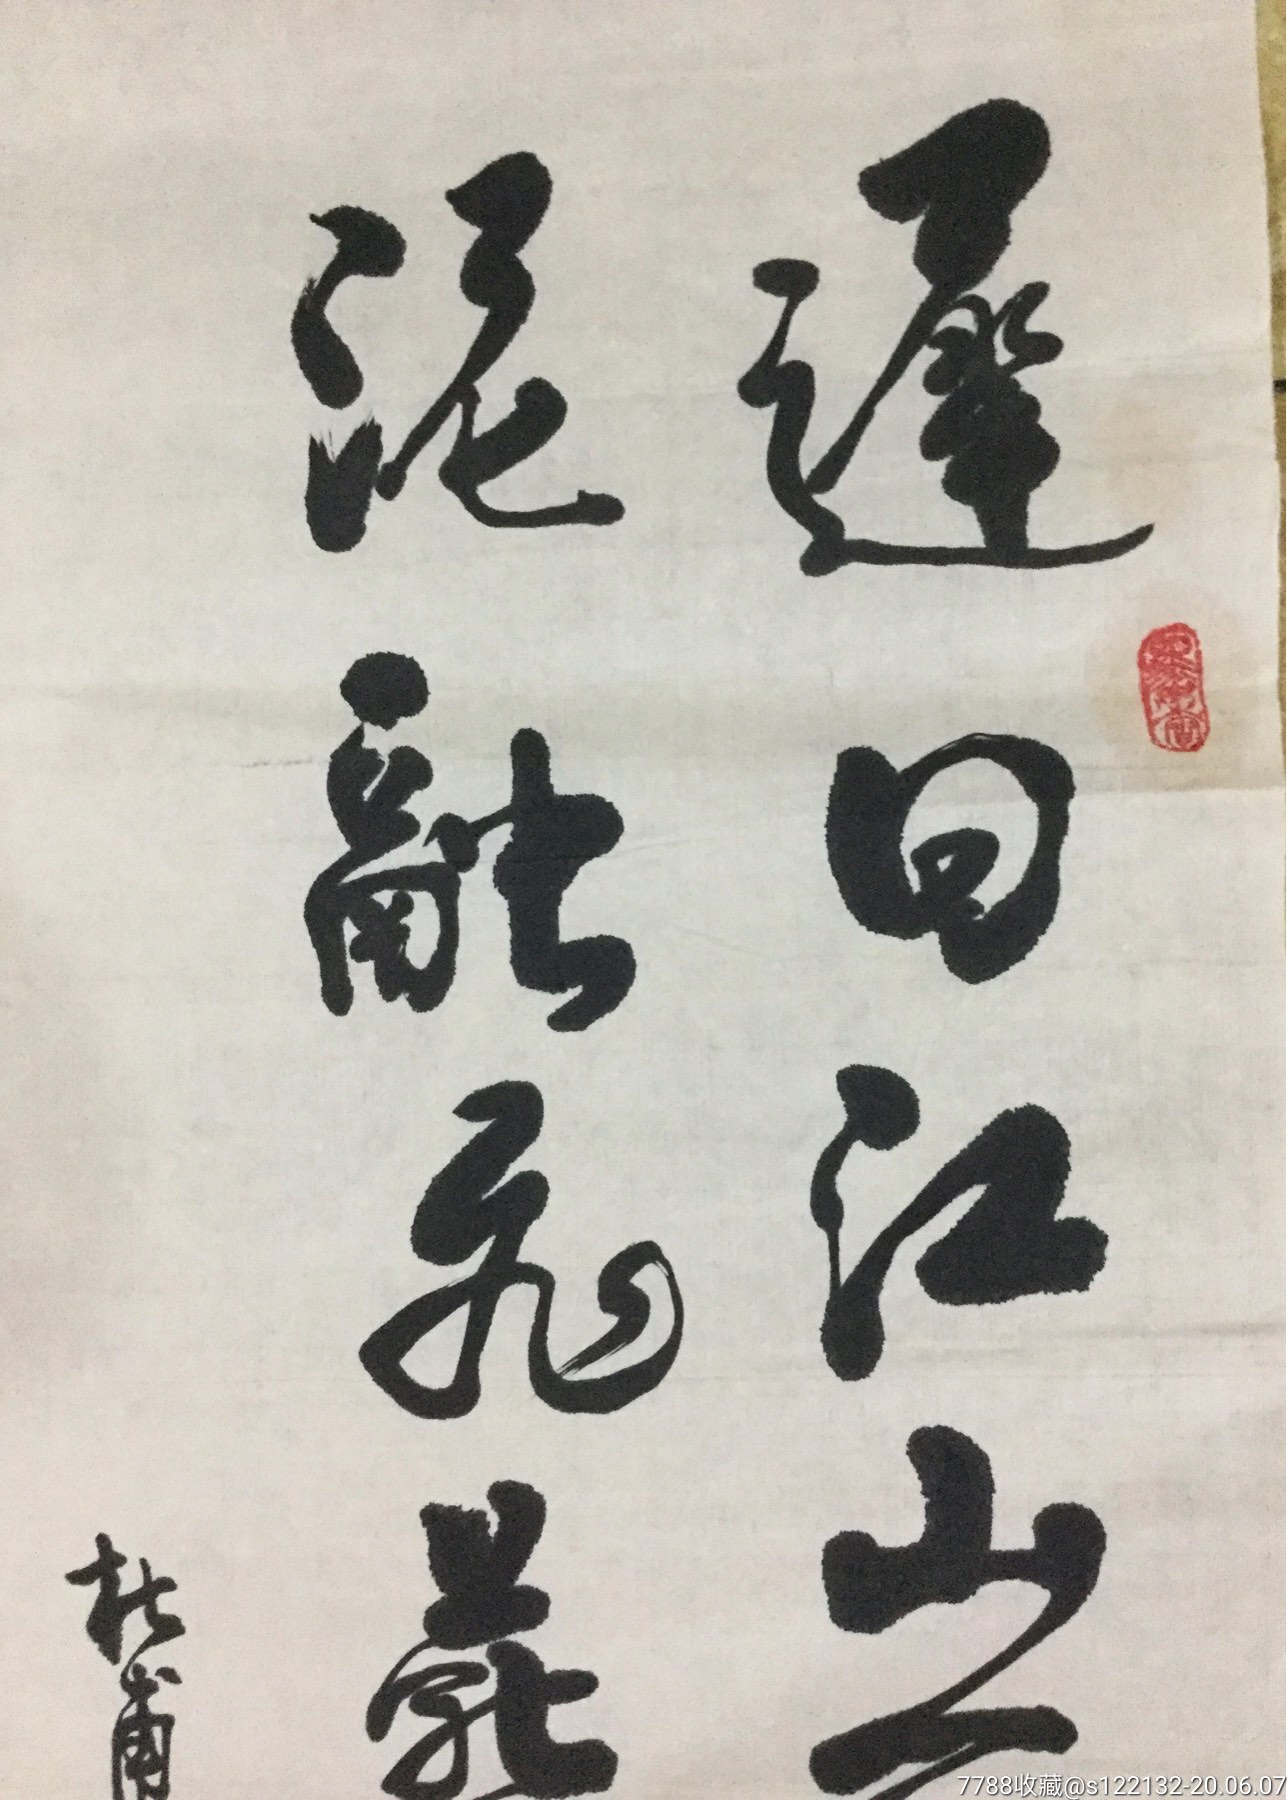 遲日江山
泥融飛燕
杜甫
7788收藏@s122132-20.06.07